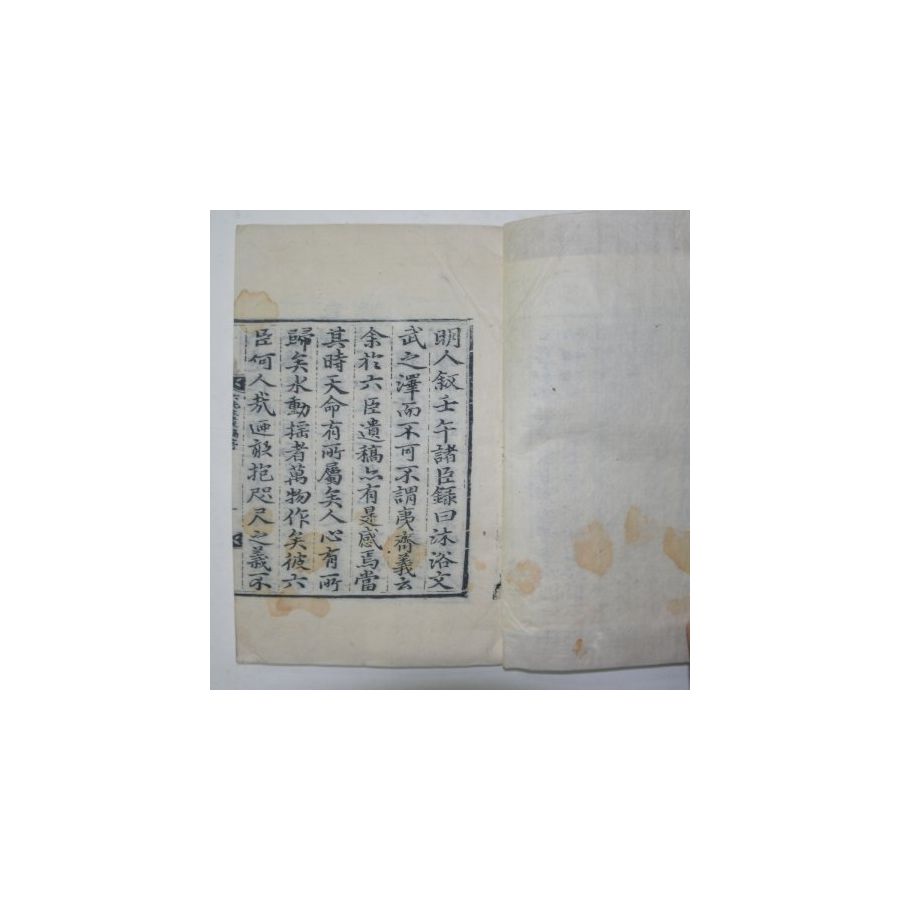 明人叙壬午諸臣録曰沐浴文
武之澤而不可不謂夷齊義云
余於六臣遺稿亦有是感焉當
其時天命有所屬矣人心有所
歸矣水動揺者萬物作矣彼六
臣何人㢤迺敢抱咫尺之義不